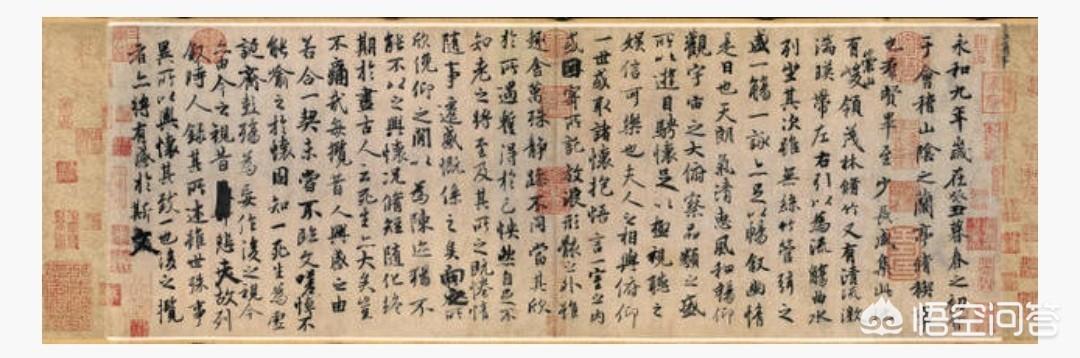 永和九年歲在癸丑暮春之初
于會稽山陰之蘭亭脩稧
也群賢畢至少長咸集此
有崇山峻領茂林脩竹又有清流激
湍暎帶左右引以為流觴曲水
列坐其次雖無絲竹管弦之
盛一觴一詠亦足以暢敘幽情
是日也天朗氣清惠風和暢仰
觀宇宙之大俯察品類之盛
所以遊目騁懷足以極視聽之
娛信可樂也夫人之相與俯仰
一世或取諸懷抱悟言一室之內
或因寄所託放浪形骸之外雖
趣舍萬殊靜躁不同當其欣
於所遇蹔得於己怏然自足不
知老之將至及其所之既惓情
隨事遷感慨係之矣向之所
欣俛仰之閒以為陳迹猶不
能不以之興懷況脩短隨化終
期於盡古人云死生亦大矣豈
不痛哉每攬昔人興感之由
若合一契未嘗不臨文嗟悼不
能喻之於懷固知一死生為虛
誕齊彭殤為妄作後之視今
亦由今之視昔悲夫故列
敘時人錄其所述雖世殊事
異所以興懷其致一也後之攬
者亦將有感於斯文
悟空问答